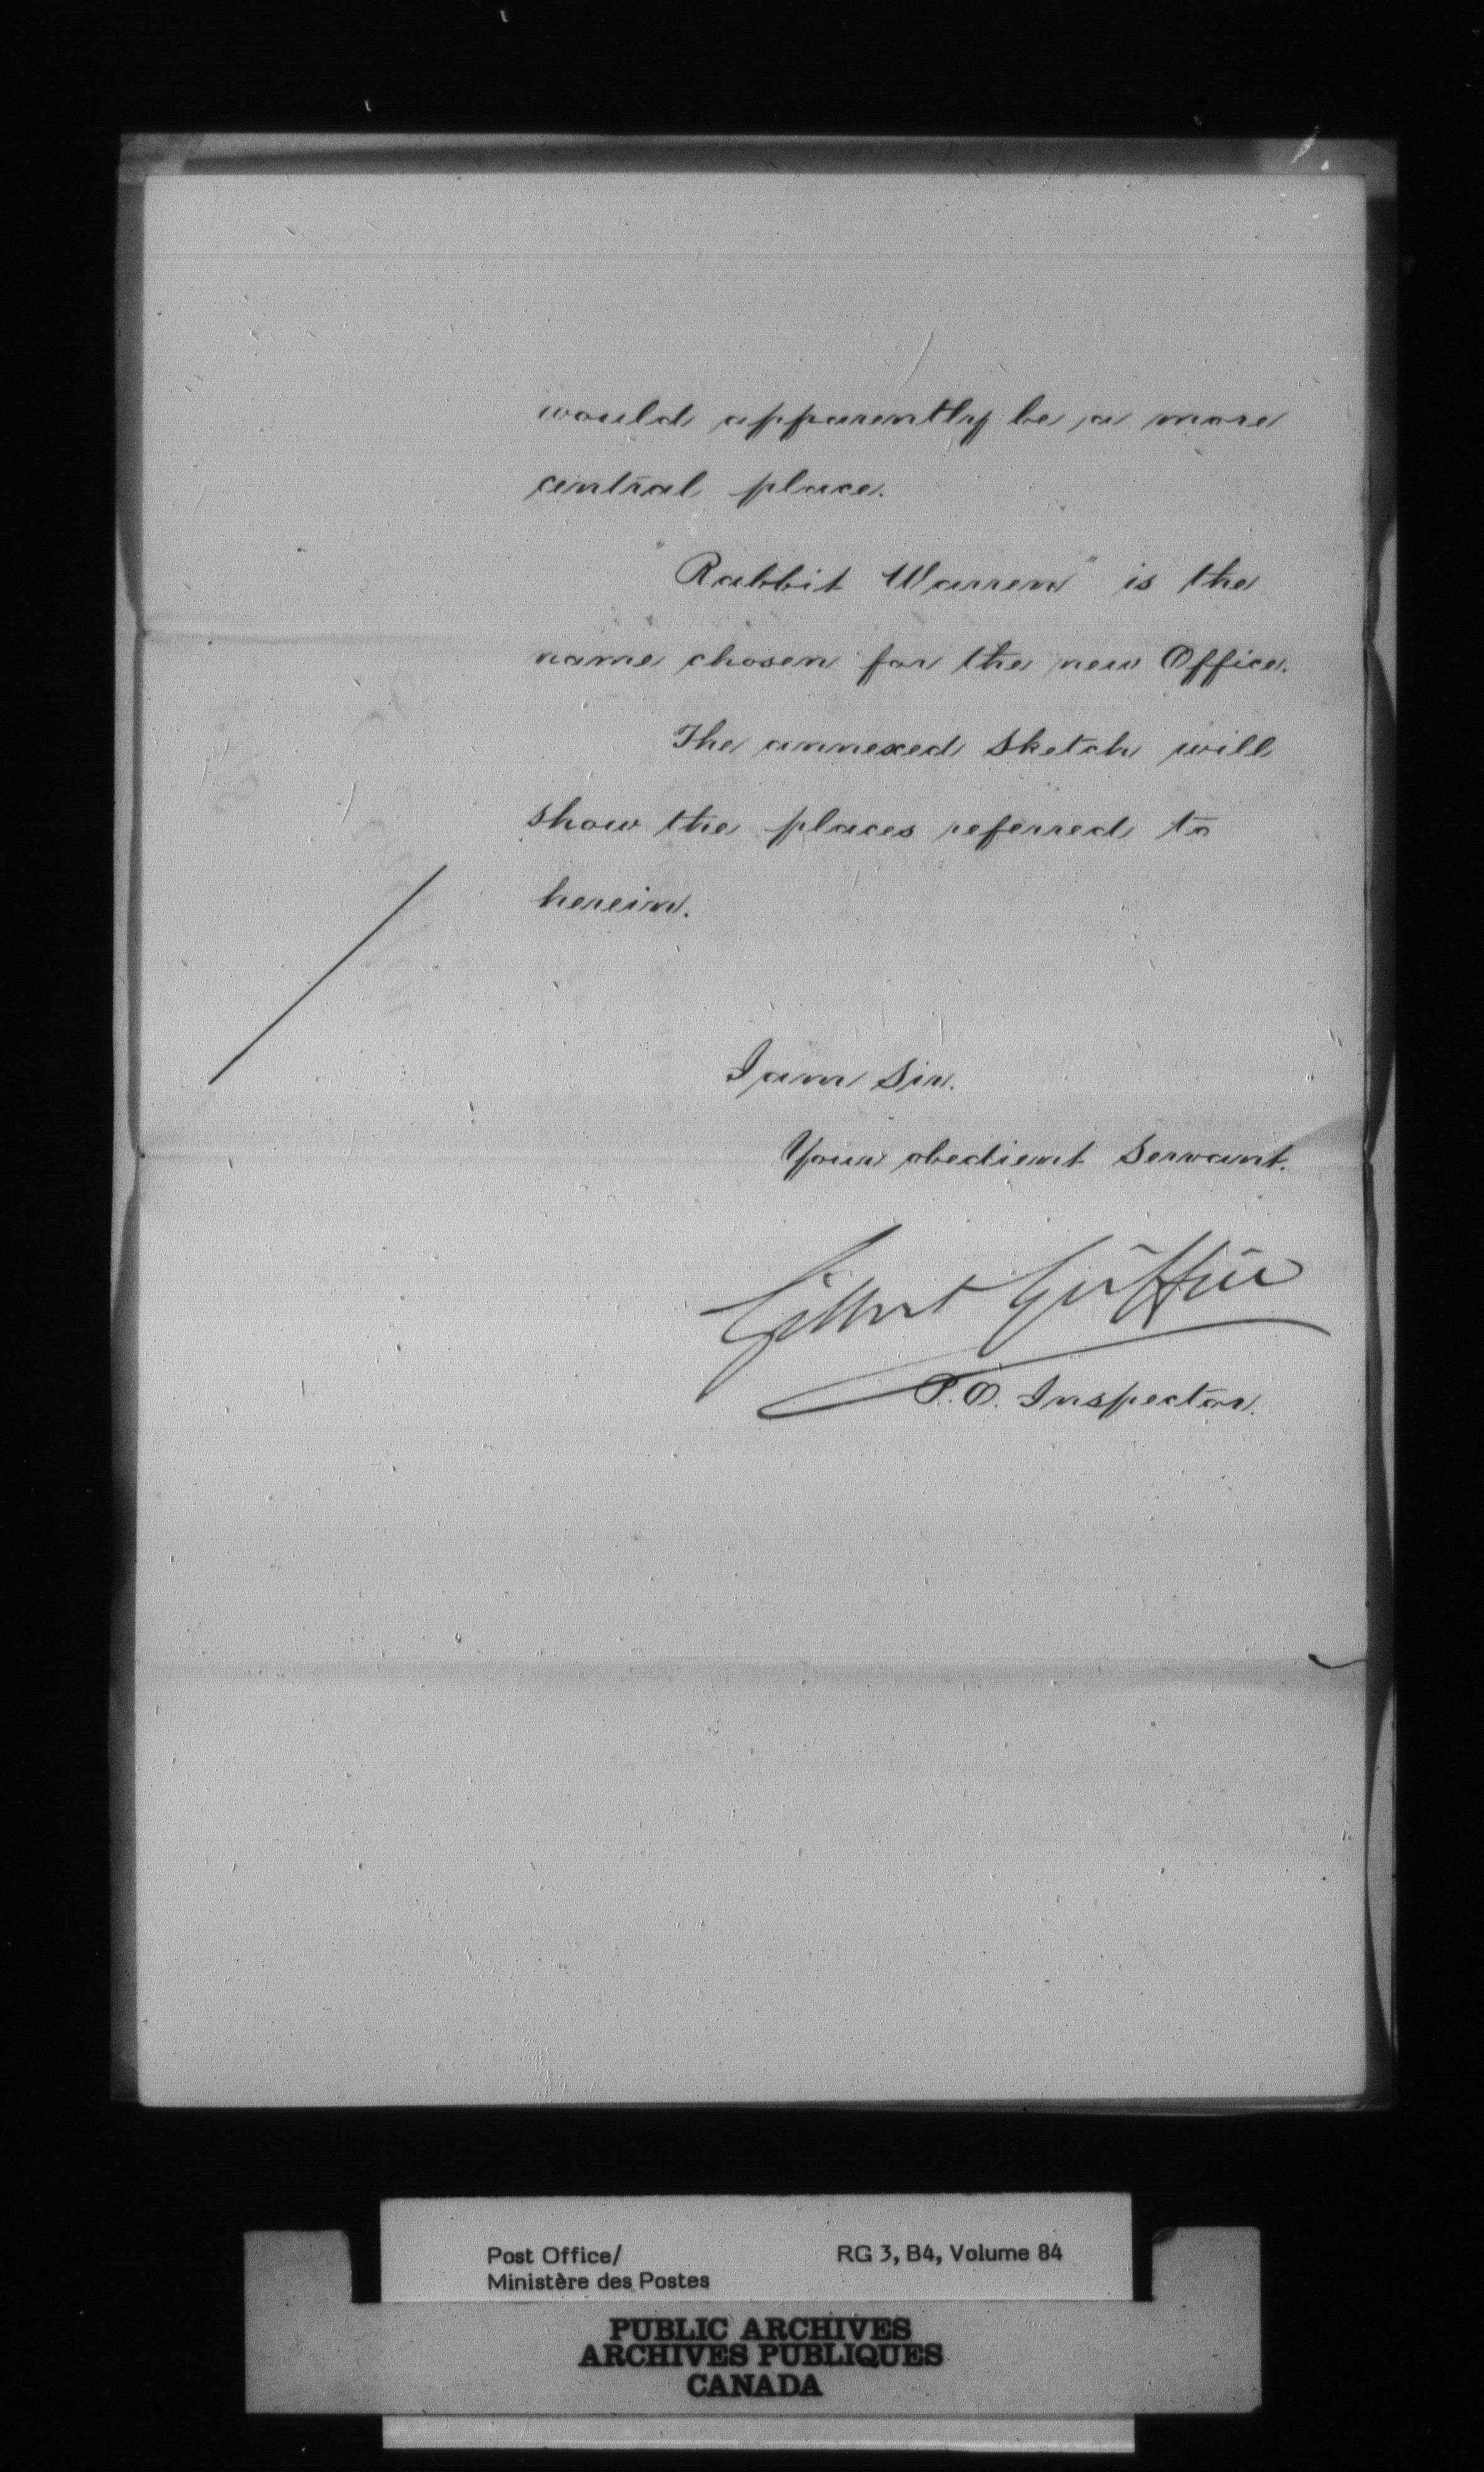 would apparently be a more
central place.
"Rabbit Warren" is the
name chosen for the new Office.
The annexed sketch will
show the places referred to
herein.
I am Sir.
Your obedient Servant.
Gilbert Griffin
P.O. Inspector.
Post Office/ RG 3, B4, Volume 84
Ministère des Postes
PUBLIC ARCHIVES
ARCHIVES PUBLIQUES
CANADA